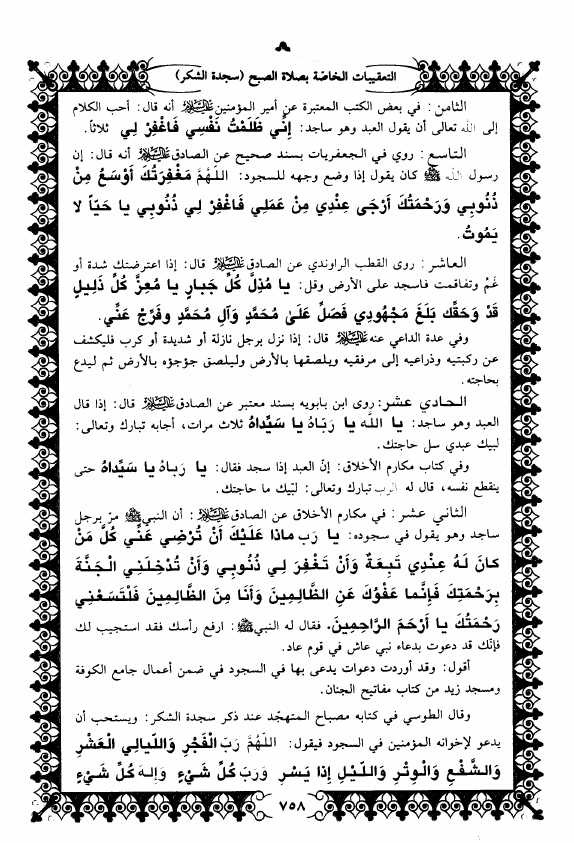 التعقيبات الخاصّة بصلاة الصبح (سجدة الشكر)
الثامن: في بعض الكتب المعتبرة عن أمير المؤمنين عليه السلام أنه قال: أحب الكلام
إلى الله تعالى أن يقول العبد وهو ساجد: إِنِّي ظَلَمْتُ نَفْسِي فَاغْفِرْ لِي ثلاثاً.
التاسع: روي في الجعفريات بسند صحيح عن الصادق عليه السلام أنه قال: إن
رسول الله ﷺ كان يقول إذا وضع وجهه للسجود: اللهُمَّ مَغْفِرَتُكَ أَوْسَعُ مِنْ
ذُنُوبِي وَرَحْمَتُكَ أَرْجَى عِنْدِي مِنْ عَمَلِي فَاغْفِرْ لِي ذُنُوبِي يا حَيّاً لا
يَمُوتُ.
العاشر: روى القطب الراوندي عن الصادق عليه السلام قال: إذا اعترضتك شدة أو
غَمّ وتفاقمت فاسجد على الأرض وقل: يا مُذِلَّ كُلِّ جَبارٍ يا مُعِزَّ كُلِّ ذَلِيلٍ
قَدْ وَحَقِّكَ بَلَغَ مَجْهُودِي فَصَلِّ عَلىٰ مُحَمَّدٍ وَآلِ مُحَمَّدٍ وَفَرِّجْ عَنِّي.
وفي عدة الداعي عنه عليه السلام قال: إذا نزل برجل نازلة أو شديدة أو كرب فليكشف
عن ركبتيه وذراعيه إلى مرفقيه ويلصقها بالأرض وليلصق جؤجؤه بالأرض ثم ليدع
بحاجته.
الحادي عشر: روى ابن بابويه بسند معتبر عن الصادق عليه السلام قال: إذا قال
العبد وهو ساجد: يا اللَّه يا رَبَاهُ يا سَيِّداهُ ثلاث مرات، أجابه تبارك وتعالى:
لبيك عبدي سل حاجتك.
وفي كتاب مكارم الأخلاق: إنّ العبد إذا سجد فقال: يا رَباهُ يا سَيِّداهُ حتى
ينقطع نفسه، قال له الرب تبارك وتعالى: لبّيك ما حاجتك.
الثاني عشر: في مكارم الأخلاق عن الصادق عليه السلام: أن النبي ﷺ مرّ برجل
ساجد وهو يقول في سجوده: يا رَب ماذا عَلَيْكَ أَنْ تُرْضِيَ عَنِّي كُلَّ مَنْ
كانَ لَهُ عِنْدِي تَبِعَةٌ وَأَنْ تَغْفِرَ لِي ذُنُوبِي وَأَنْ تُدْخِلَنِي الْجَنَّةَ
بِرَحْمَتِكَ فَإِنَّما عَفْوُكَ عَنِ الظَّالِمِينَ وَأَنَا مِنَ الظَّالِمِينَ فَلْتَسَعْنِي
رَحْمَتُكَ يا أَرْحَمَ الرَّاحِمِينَ. فقال له النبي ﷺ: ارفع رأسك فقد استجيب لك
فإنّك قد دعوت بدعاء نبي عاش في قوم عاد.
أقول: وقد أوردت دعوات يدعى بها في السجود في ضمن أعمال جامع الكوفة
ومسجد زيد من كتاب مفاتيح الجنان.
وقال الطوسي في كتابه مصباح المتهجّد عند ذكر سجدة الشكر: ويستحب أن
يدعو لإخوانه المؤمنين في السجود فيقول: اللهُمَّ رَبّ الْفَجْرِ وَاللَّيالِي الْعَشْرِ
وَالشَّفْعِ وَالْوِتْرِ وَاللَّيْلِ إِذا يَسْرِ وَرَبّ كُلِّ شَيْءٍ وَإِلهَ كُلِّ شَيْءٍ
٧٥٨